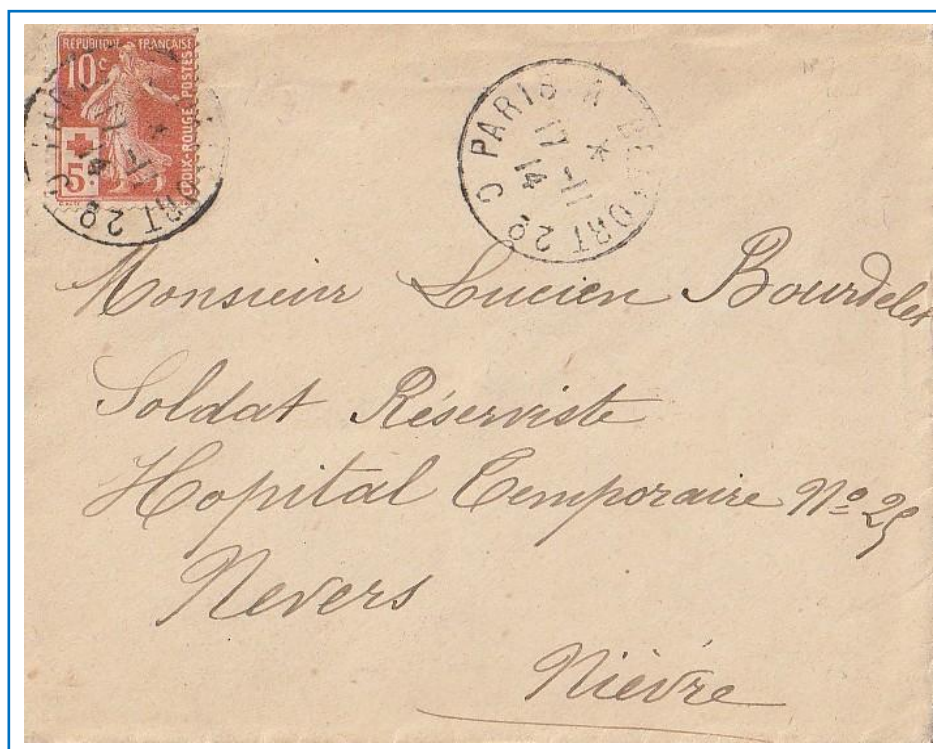 RÉPUBLIQUE FRANÇAISE
10c
5c
CROIX-ROUGE POSTES
PARIS A BELFORT 2° C
17 -11
14
Monsieur Lucien Bourdelet
Soldat Réserviste
Hopital Temporaire Nº 25
Nevers
Nièvre